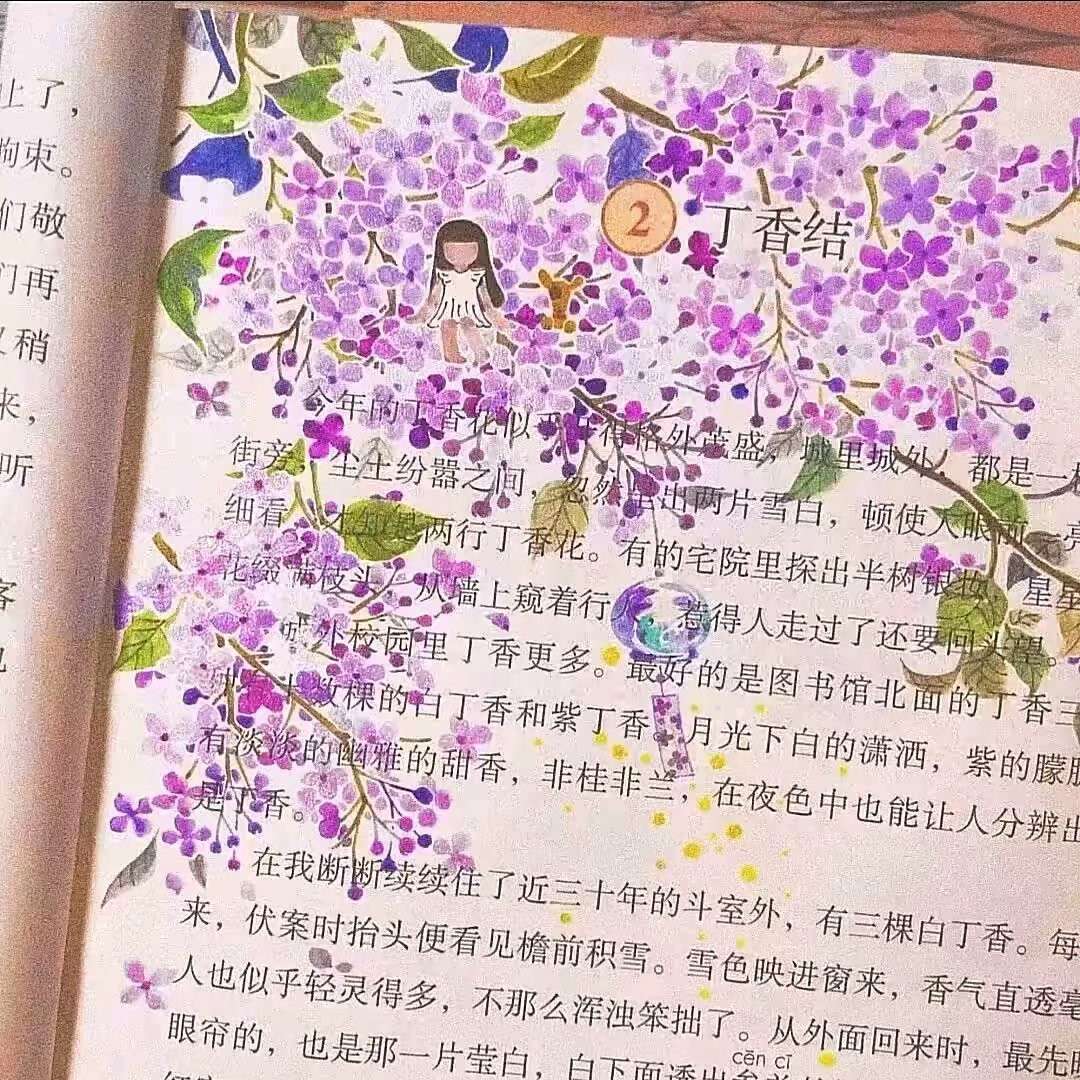 上了，
拘束。
们敬
们再
又稍
来，
听
客
2 丁香结
今年的丁香花似乎开得格外茂盛，城里城外，都是一样
街旁，尘土纷嚣之间，忽然呈出两片雪白，顿使人眼前一亮
细看，才知是两行丁香花。有的宅院里探出半树银妆，星星
花缀满枝头，从墙上窥着行人，惹得人走过了还要回头望。
外校园里丁香更多。最好的是图书馆北面的丁香三
十数棵的白丁香和紫丁香。月光下白的潇洒，紫的朦胧
有淡淡的幽雅的甜香，非桂非兰，在夜色中也能让人分辨出
是丁香。
在我断断续续住了近三十年的斗室外，有三棵白丁香。每
来，伏案时抬头便看见檐前积雪。雪色映进窗来，香气直透毫
人也似乎轻灵得多，不那么浑浊笨拙了。从外面回来时，最先映
cēn cī
眼帘的，也是那一片莹白，白下面透出参差的